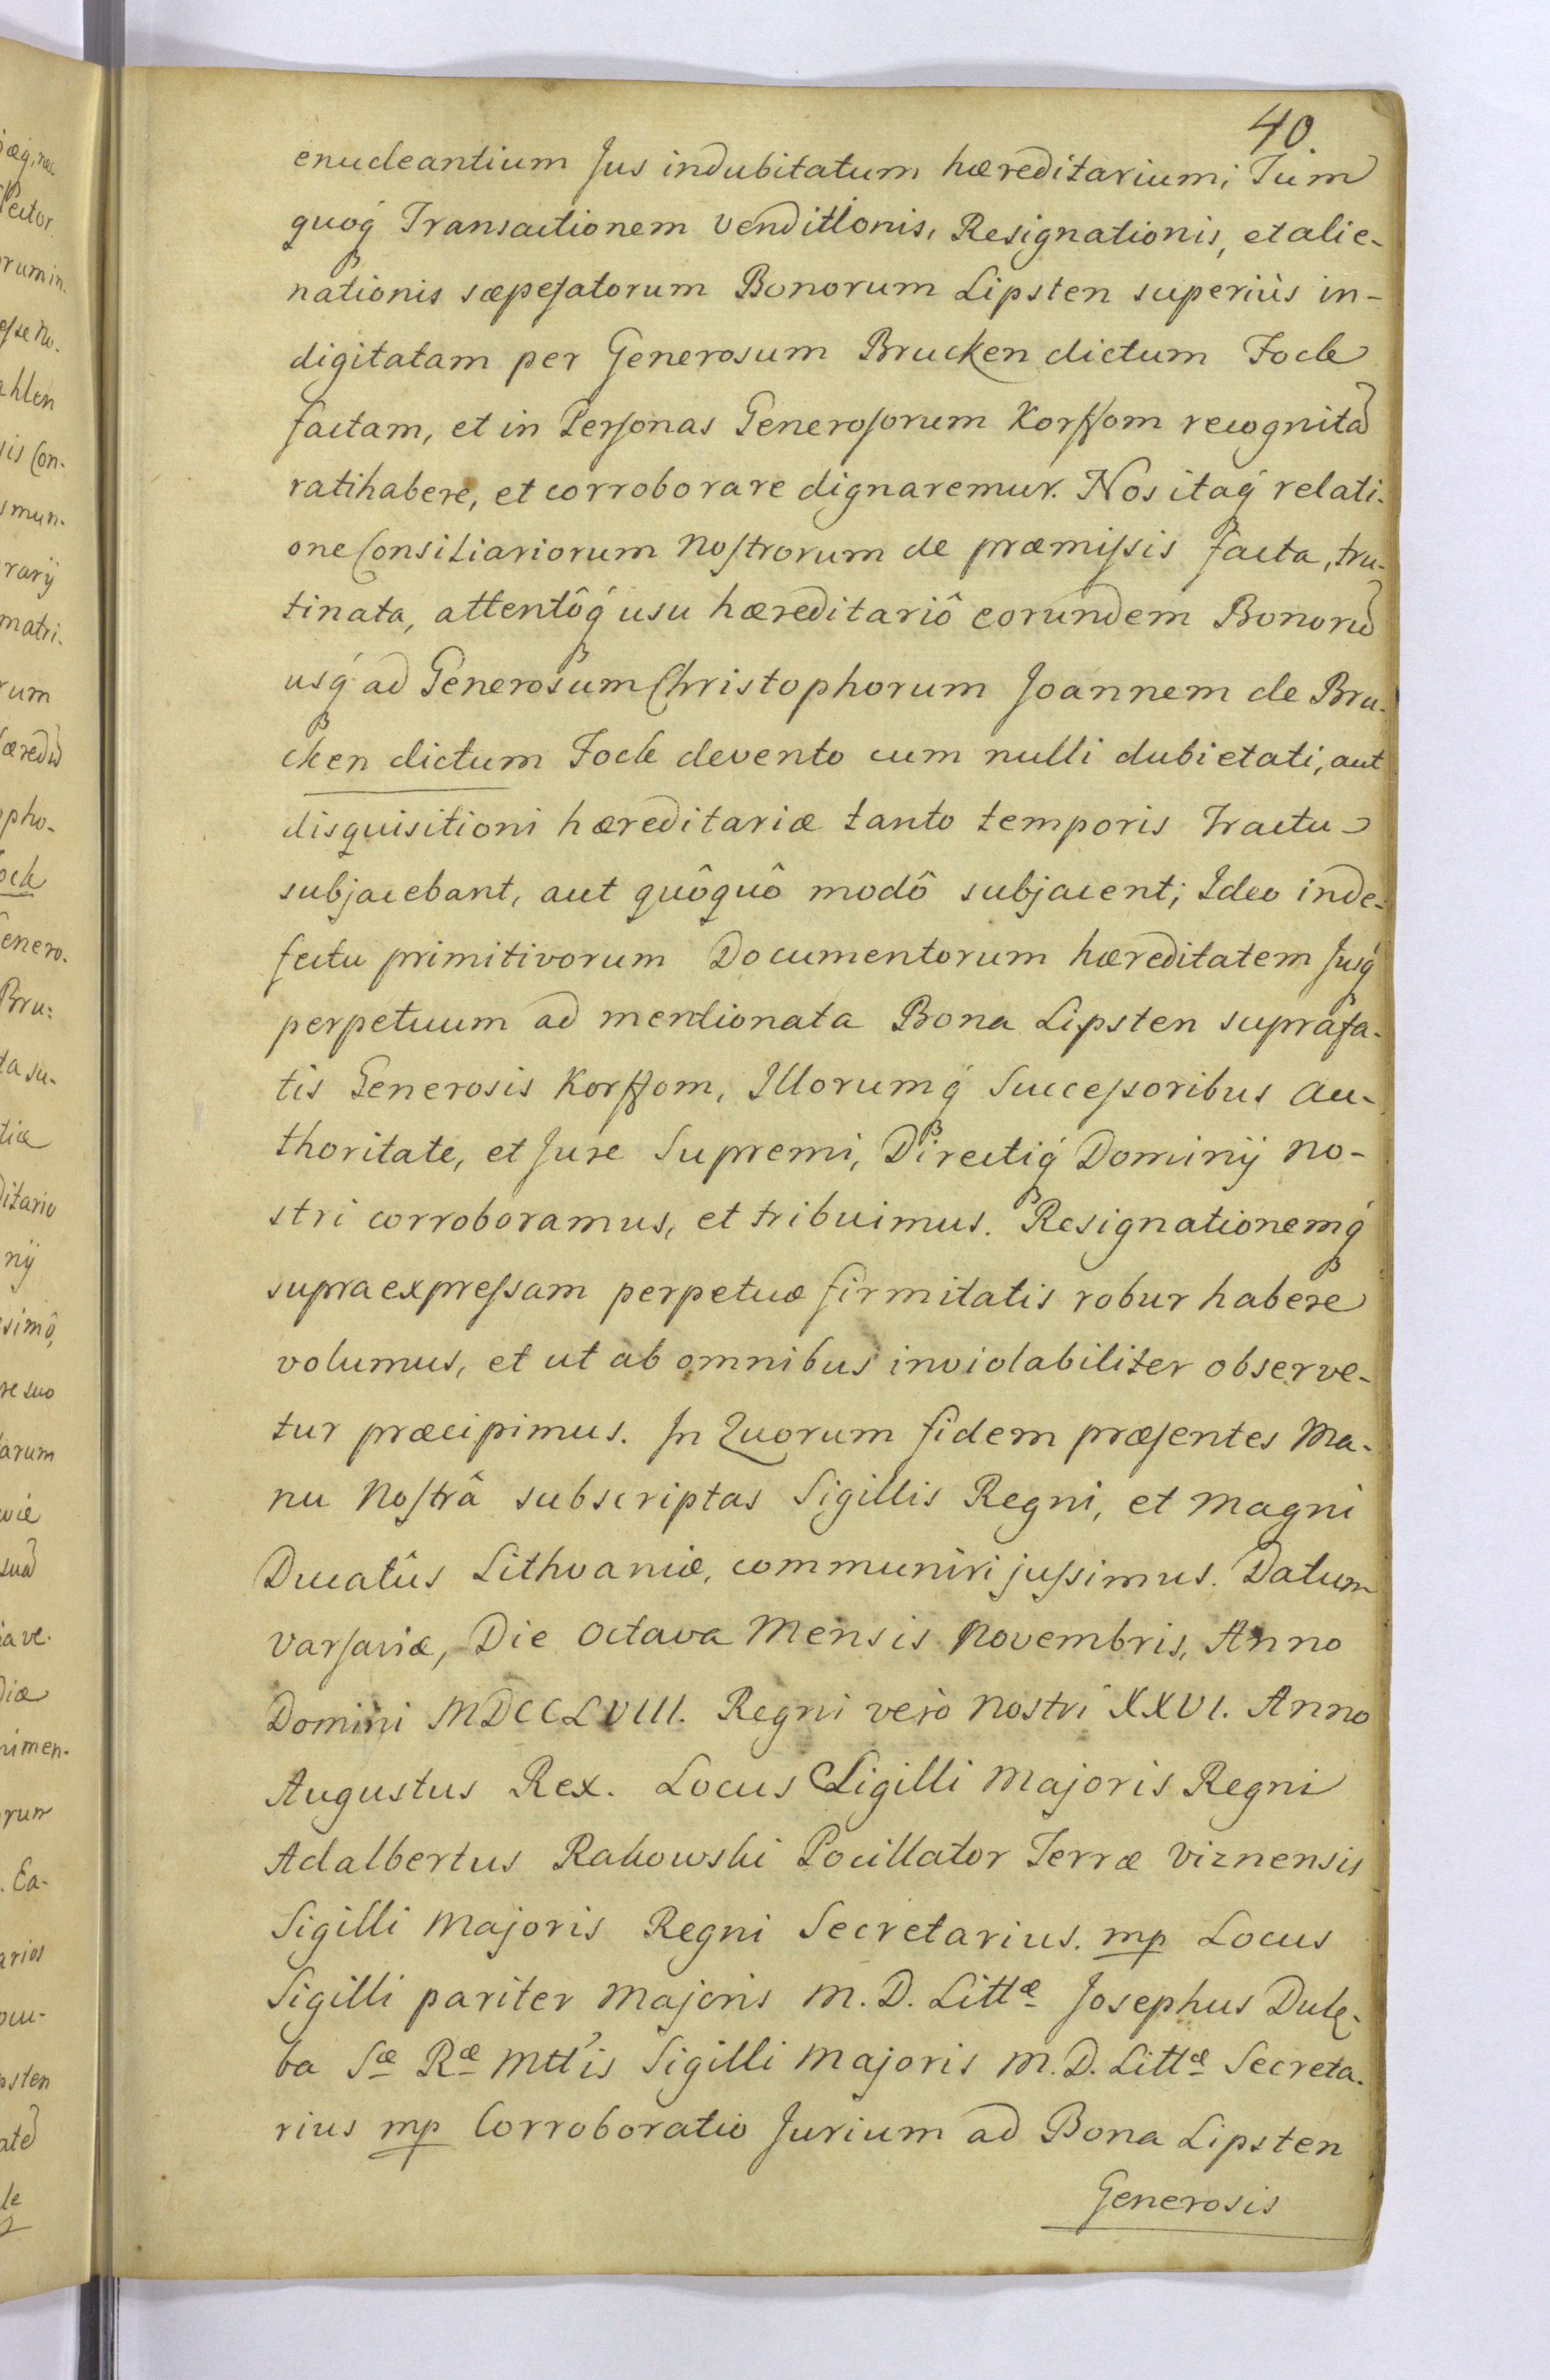 40.
enucleantium Jus indubitatum hæreditarium; Tum
quoq́ Transactionem venditionis, Resignationis, et alie-
nationis sæpefatorum Bonorum Lipsten superiùs in-
digitatam per Generosum Brucken dictum Fock
factam, et in Personas Generosorum Korffom recognitã
ratihabere, et corroborare dignaremur. Nos itaq́ relati-
one Consiliariorum Nostrorum de præmissis facta, tru-
tinata, attentôq́ usu hæreditariô eorundem Bonorũ
usq́ ad Generosum Christophorum Joannem de Bru-
cken dictum Fock devento cum nulli dubietati, aut
disquisitioni hæreditariæ tanto temporis tractu
subjacebant, aut quôquô modô subjacent; Ideo inde-
fectu primitivorum Documentorum hæreditatem Jusq́
perpetuum ad mentionata Bona Lipsten suprafa-
tis Generosis Korffom, Illorumq́ Successoribus au-
thoritate, et Jure Supremi, Directiq́ Dominij no-
stri corroboramus, et tribuimus. Resignationemq́
supraexpressam perpetuæ firmitatis robur habere
volumus, et ut ab omnibus inviolabiliter observe-
tur præcipimus. In Quorum fidem præsentes Ma-
nu Nostrâ subscriptas Sigillis Regni, et Magni
Ducatûs Lithvaniæ, communiri jussimus. Datum
Varsaviæ, Die Octava Mensis Novembris, Anno
Domini MDCCLVIII. Regni verò Nostri XXVI. Anno
Augustus Rex. Locus Sigilli Majoris Regni
Adalbertus Rakowski Pocillator Terræ Viznensis
Sigilli Majoris Regni Secretarius. mp Locus
Sigilli pariter Majoris M. D. Littæ Josephus Dulę-
ba Sæ Ræ Mtt'is Sigilli Majoris M. D. Littæ Secreta-
rius mp Corroboratio Jurium ad Bona Lipsten
Generosis